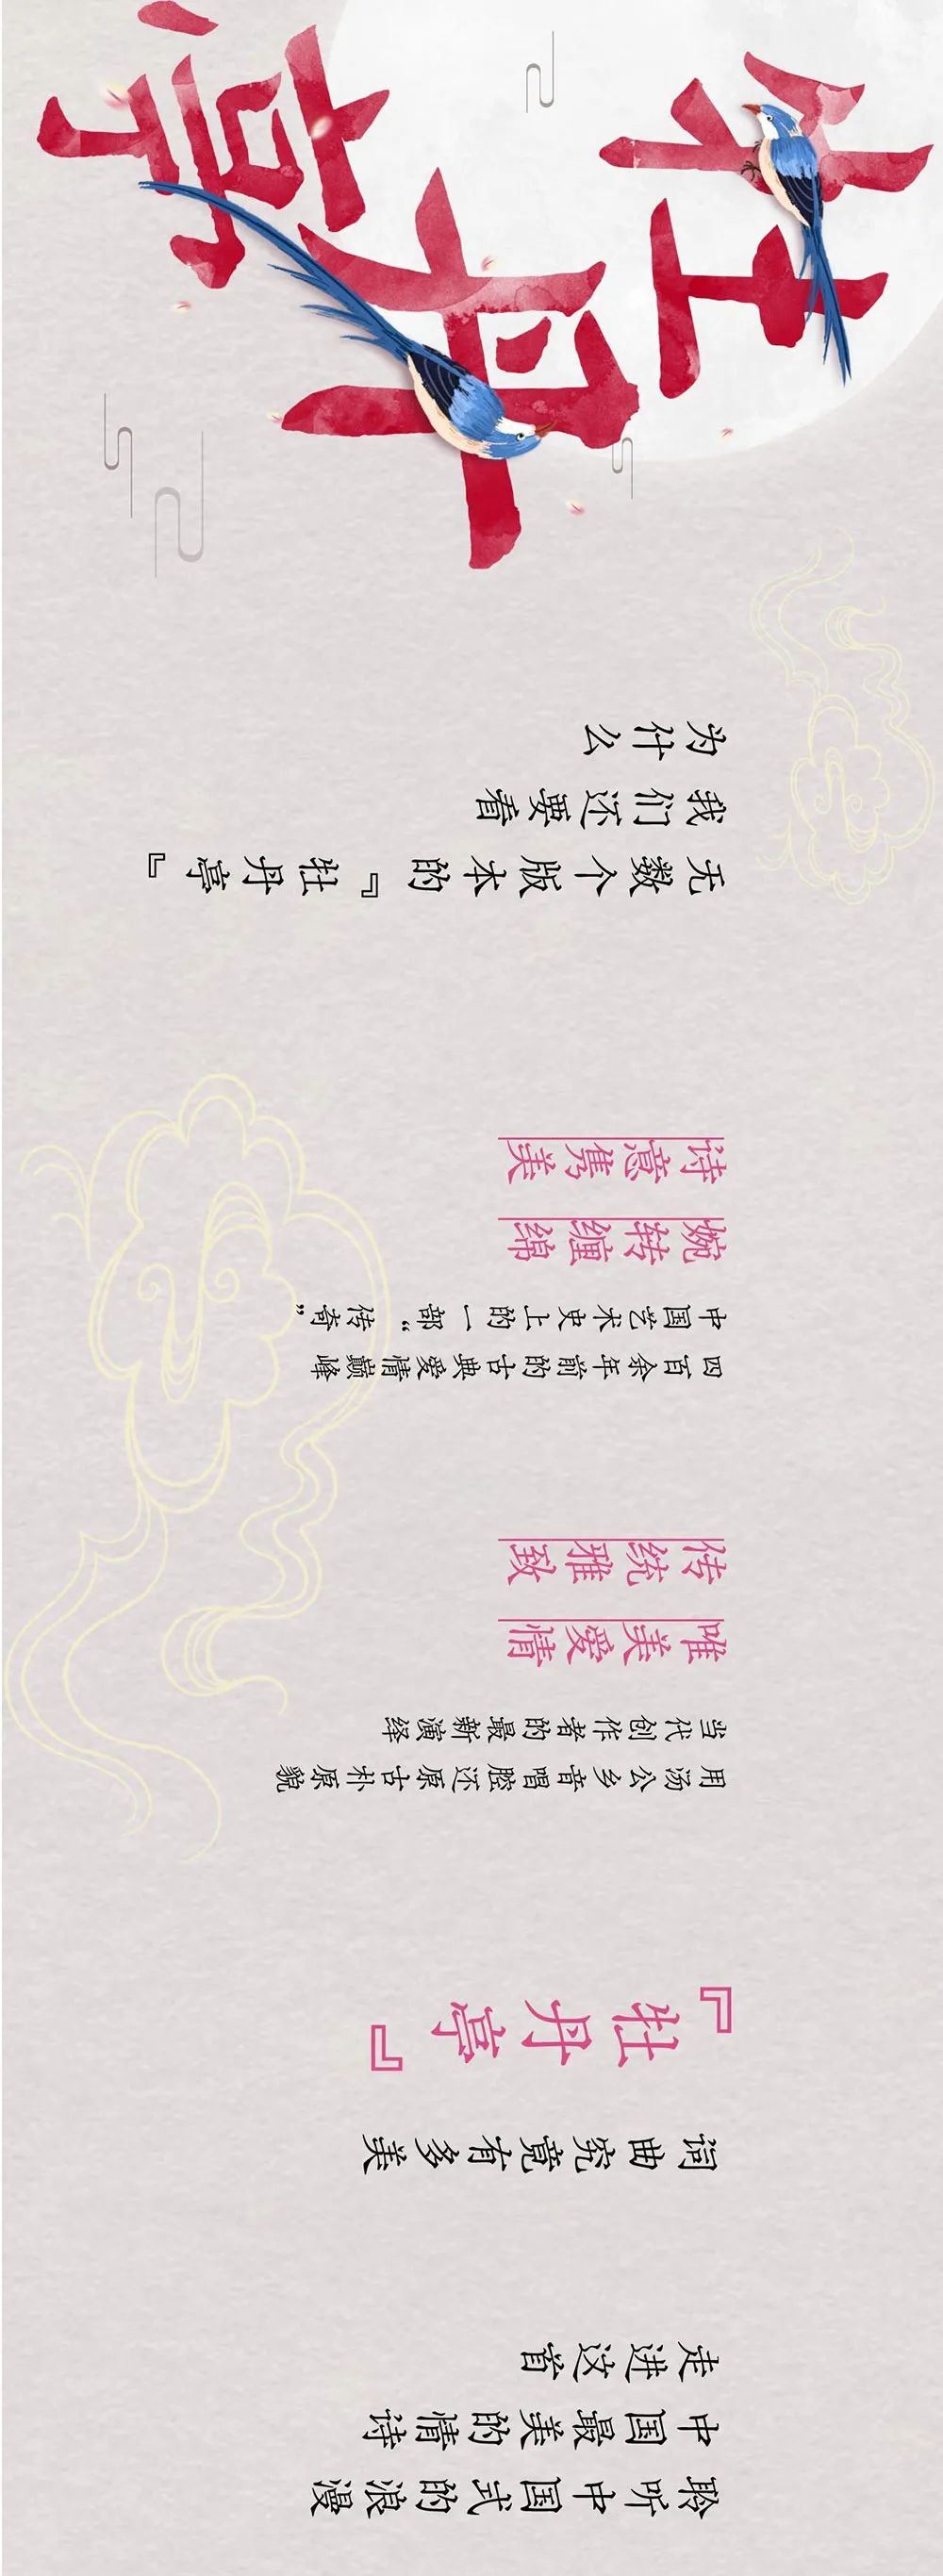 牡丹亭
为什么
我们还要看
无数个版本的『牡丹亭』
诗意隽美
婉转缠绵
中国艺术史上的一部“传奇”
四百余年前的古典爱情巅峰
传统雅致
唯美爱情
当代创作者的最新演绎
用汤公乡音唱腔还原古朴原貌
『牡丹亭』
词曲究竟有多美
走进这首
中国最美的情诗
聆听中国式的浪漫